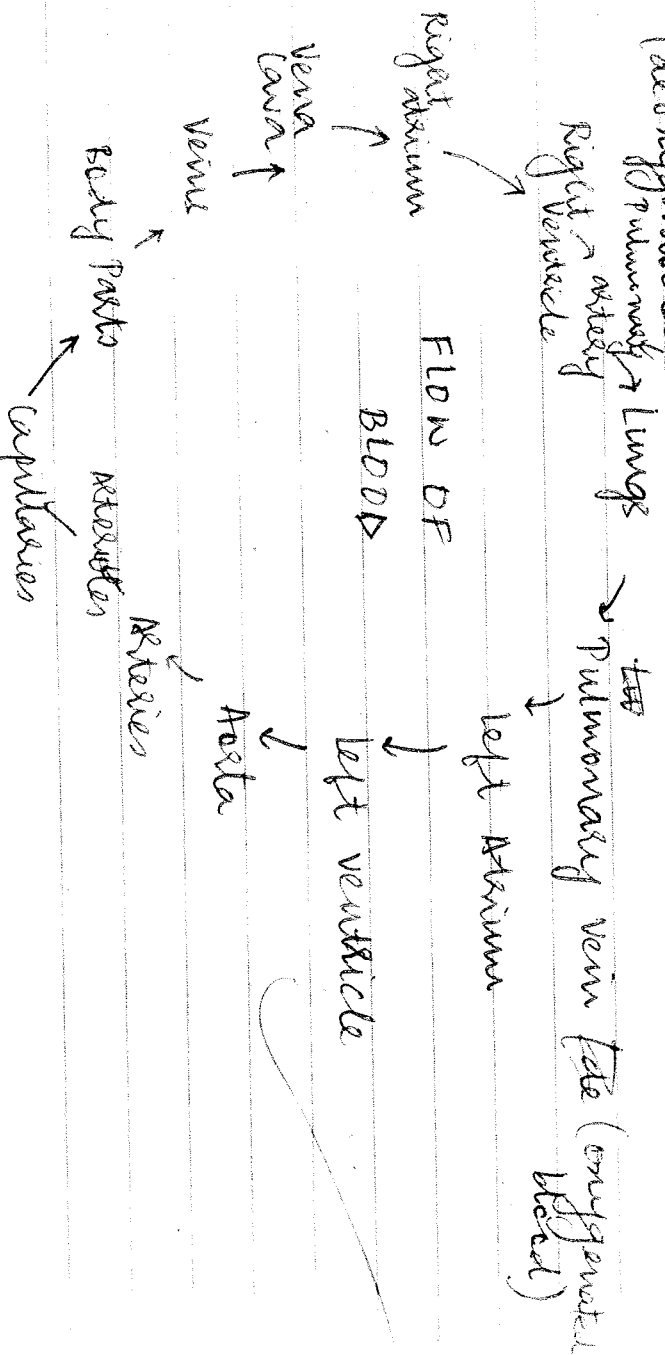 Pulmonary
artery
→ Lungs → Pulmonary vein (oxygenated
blood)
Right
Ventricle
Left Atrium
Right
atrium
FLOW OF
BLOOD
left ventricle
Vena
Cava
Aorta
Veins
Arteries
Body Parts
Arterioles
Capillaries